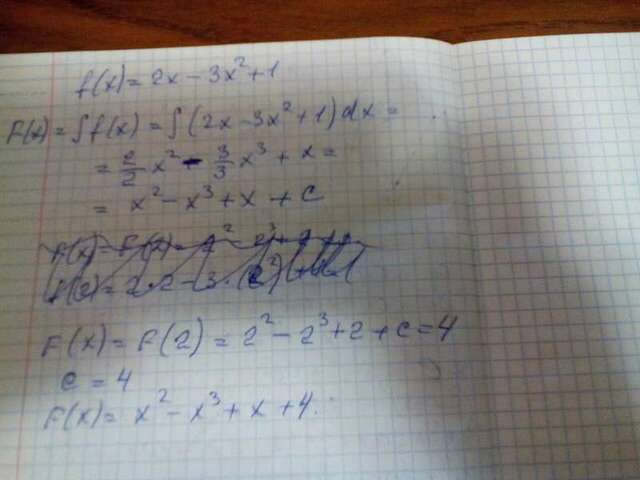 f(x) = 2x - 3x² + 1
F(x) = ∫f(x) = ∫(2x - 3x² + 1)dx =
= 2/2 x² - 3/3 x³ + x =
= x² - x³ + x + c
F(x) = F(2) = 2² - 2³ + 2 + c = 4
c = 4
F(x) = x² - x³ + x + 4.